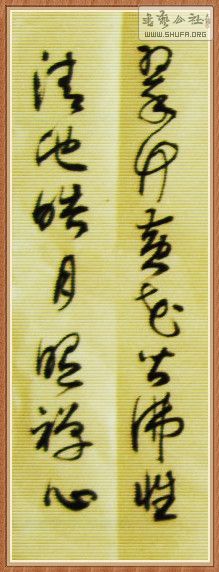 翠竹黄花皆佛性
清池皓月照禅心
书艺公社
WWW.SHUFA.ORG